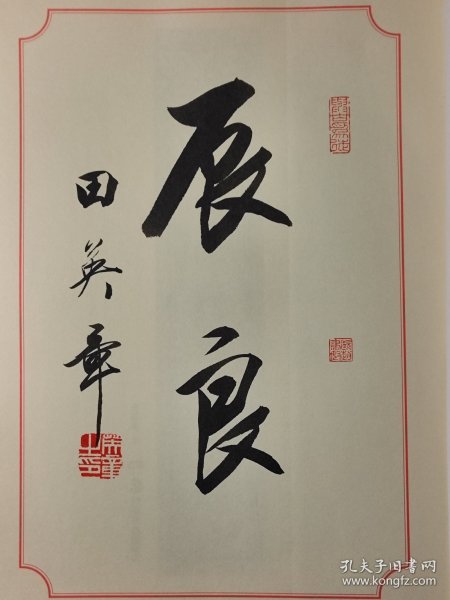 辰良
田英章
孔夫子旧书网
www.kongfz.com